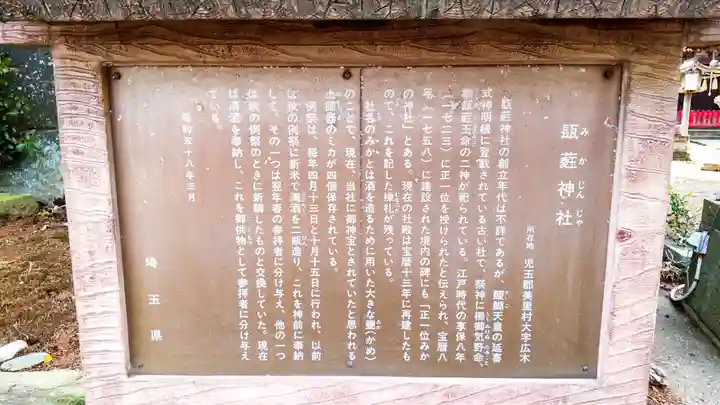 みか じんじゃ
甕𤭖神社
所在地 児玉郡美里村大字広木
神社の創立年代は不詳であるが、醍醐天皇の延喜
式神明帳に登載されている古い社で、祭神に櫛御気野命、
櫛玉命の二神が祀られている。江戸時代の享保八年
(一七二三)に正一位を授けられたと伝えられ、宝暦八
年(一七五八)に建設された境内の碑にも「正一位みか
の神社」とある。現在の社殿は宝暦十三年に再建したも
ので、これを記した棟札が残っている。
社名のみかとは酒を造るために用いた大きな甕(かめ)
のことで、現在、当社に御神宝とされていたと思われる
土師器のミカが四個保存されている。
例祭は、毎年四月十三日と十月十五日に行われ、以前
は秋の例祭に新米で濁酒を二瓶造り、これを神前に奉納
して、その一つは翌年春の参拝者に分け与え、他の一つ
は秋の例祭のときに新調したものと交換していた。現在
は清酒を奉納し、これを御供物として参拝者に分け与え
ている。
昭和五十八年三月
埼玉県